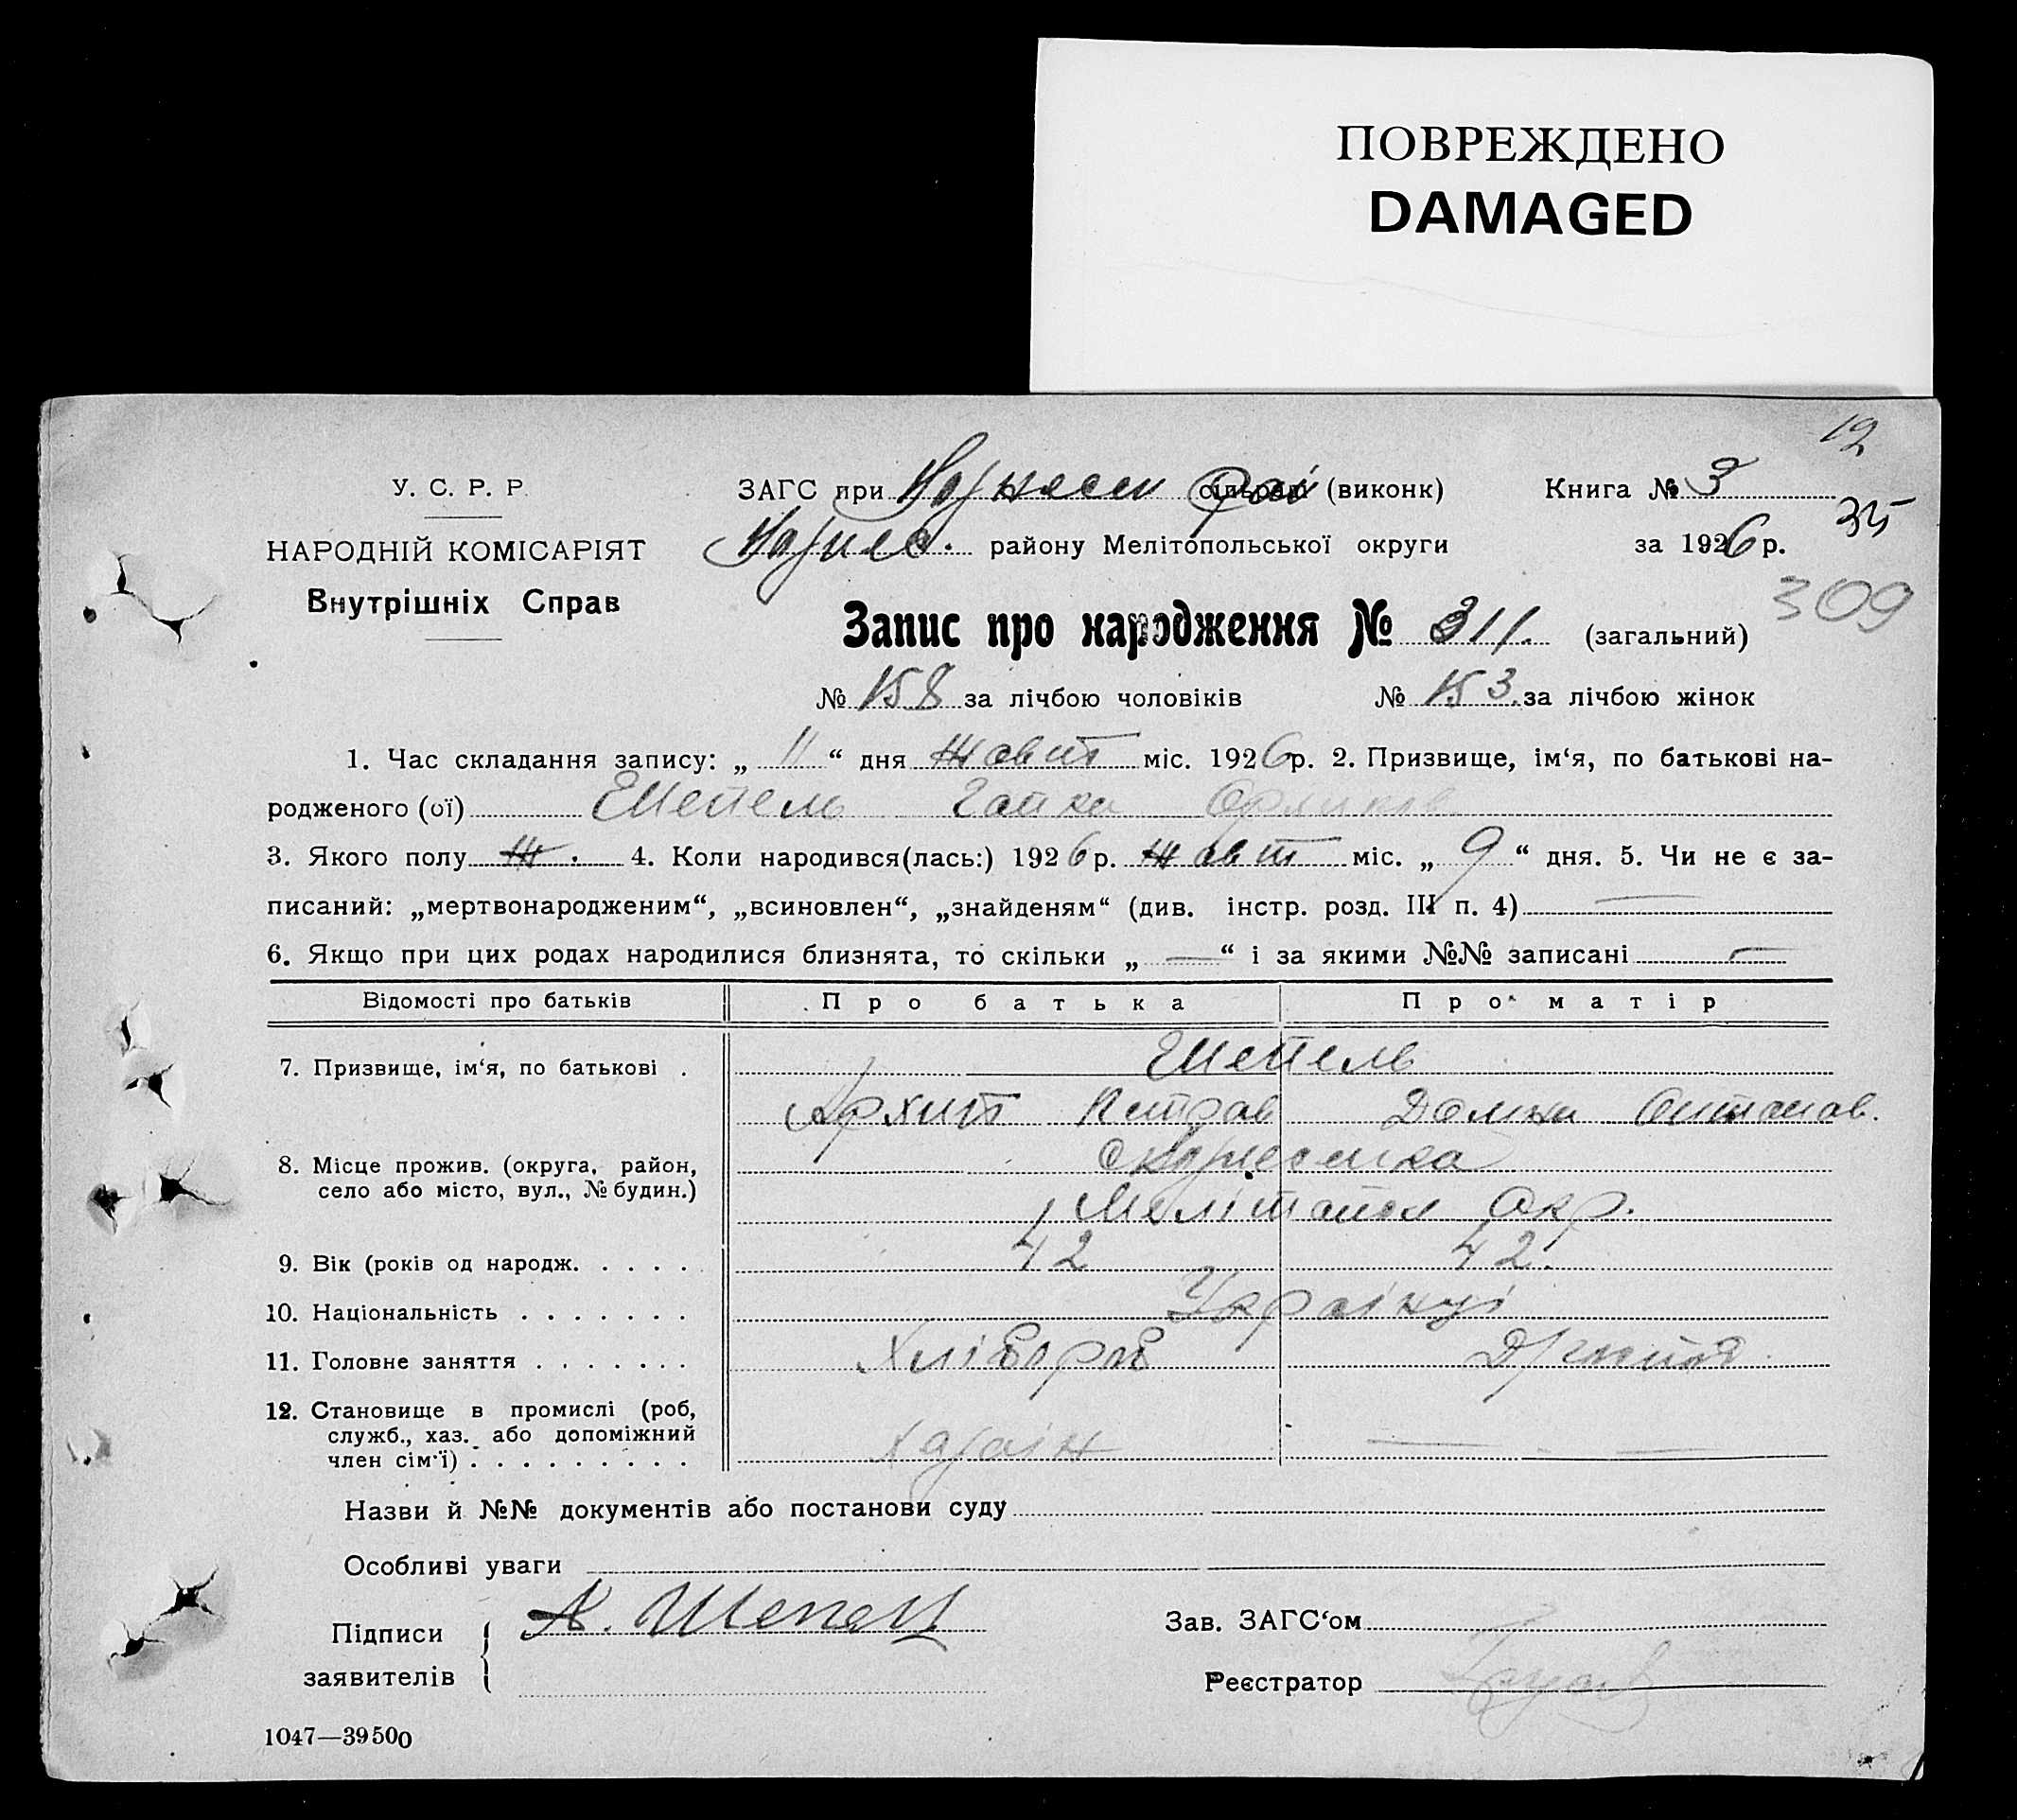 ПОВРЕЖДЕНО
DAMAGED
12
У. С. Р. Р.
ЗАГС при сільраді (виконк)
Книга № 3
35
НАРОДНІЙ КОМІСАРІЯТ
району Мелітопольської округи
за 1926 р.
Внутрішніх Справ
309
Запис про народження № 311. (загальний)
№ 158 за лічбою чоловіків № 153. за лічбою жінок
1. Час складання запису: „ 11 “ дня жовт міс. 1926 р. 2. Призвище, ім‘я, по батькові на-
родженого (ої) Шепель
3. Якого полу ж. 4. Коли народився(лась:) 1926 р. жовт міс. „ 9 “ дня. 5. Чи не є за-
писаний: „мертвонародженим“, „всиновлен“, „знайденям“ (див. інстр. розд. III п. 4) —
6. Якщо при цих родах народилися близнята, то скільки „ — “ і за якими №№ записані —
Відомості про батьків Про батька Про матір
7. Призвище, ім‘я, по батькові . Шепель
Архип Петров Домна
8. Місце прожив. (округа, район,
село або місто, вул., № будин.)
Мелітопол Окр.
9. Вік (років од народж. . . . . . 42 42.
10. Національність . . . . . . . Українці
11. Головне заняття . . . . . . . Хлібороб
12. Становище в промислі (роб,
служб., хаз. або допоміжний
член сім‘ї) . . . . . . . . . хазаін — —
Назви й №№ документів або постанови суду
Особливі уваги
Підписи
заявителів
А. Шепель
Зав. ЗАГС‘ом
Реєстратор
1047—39500